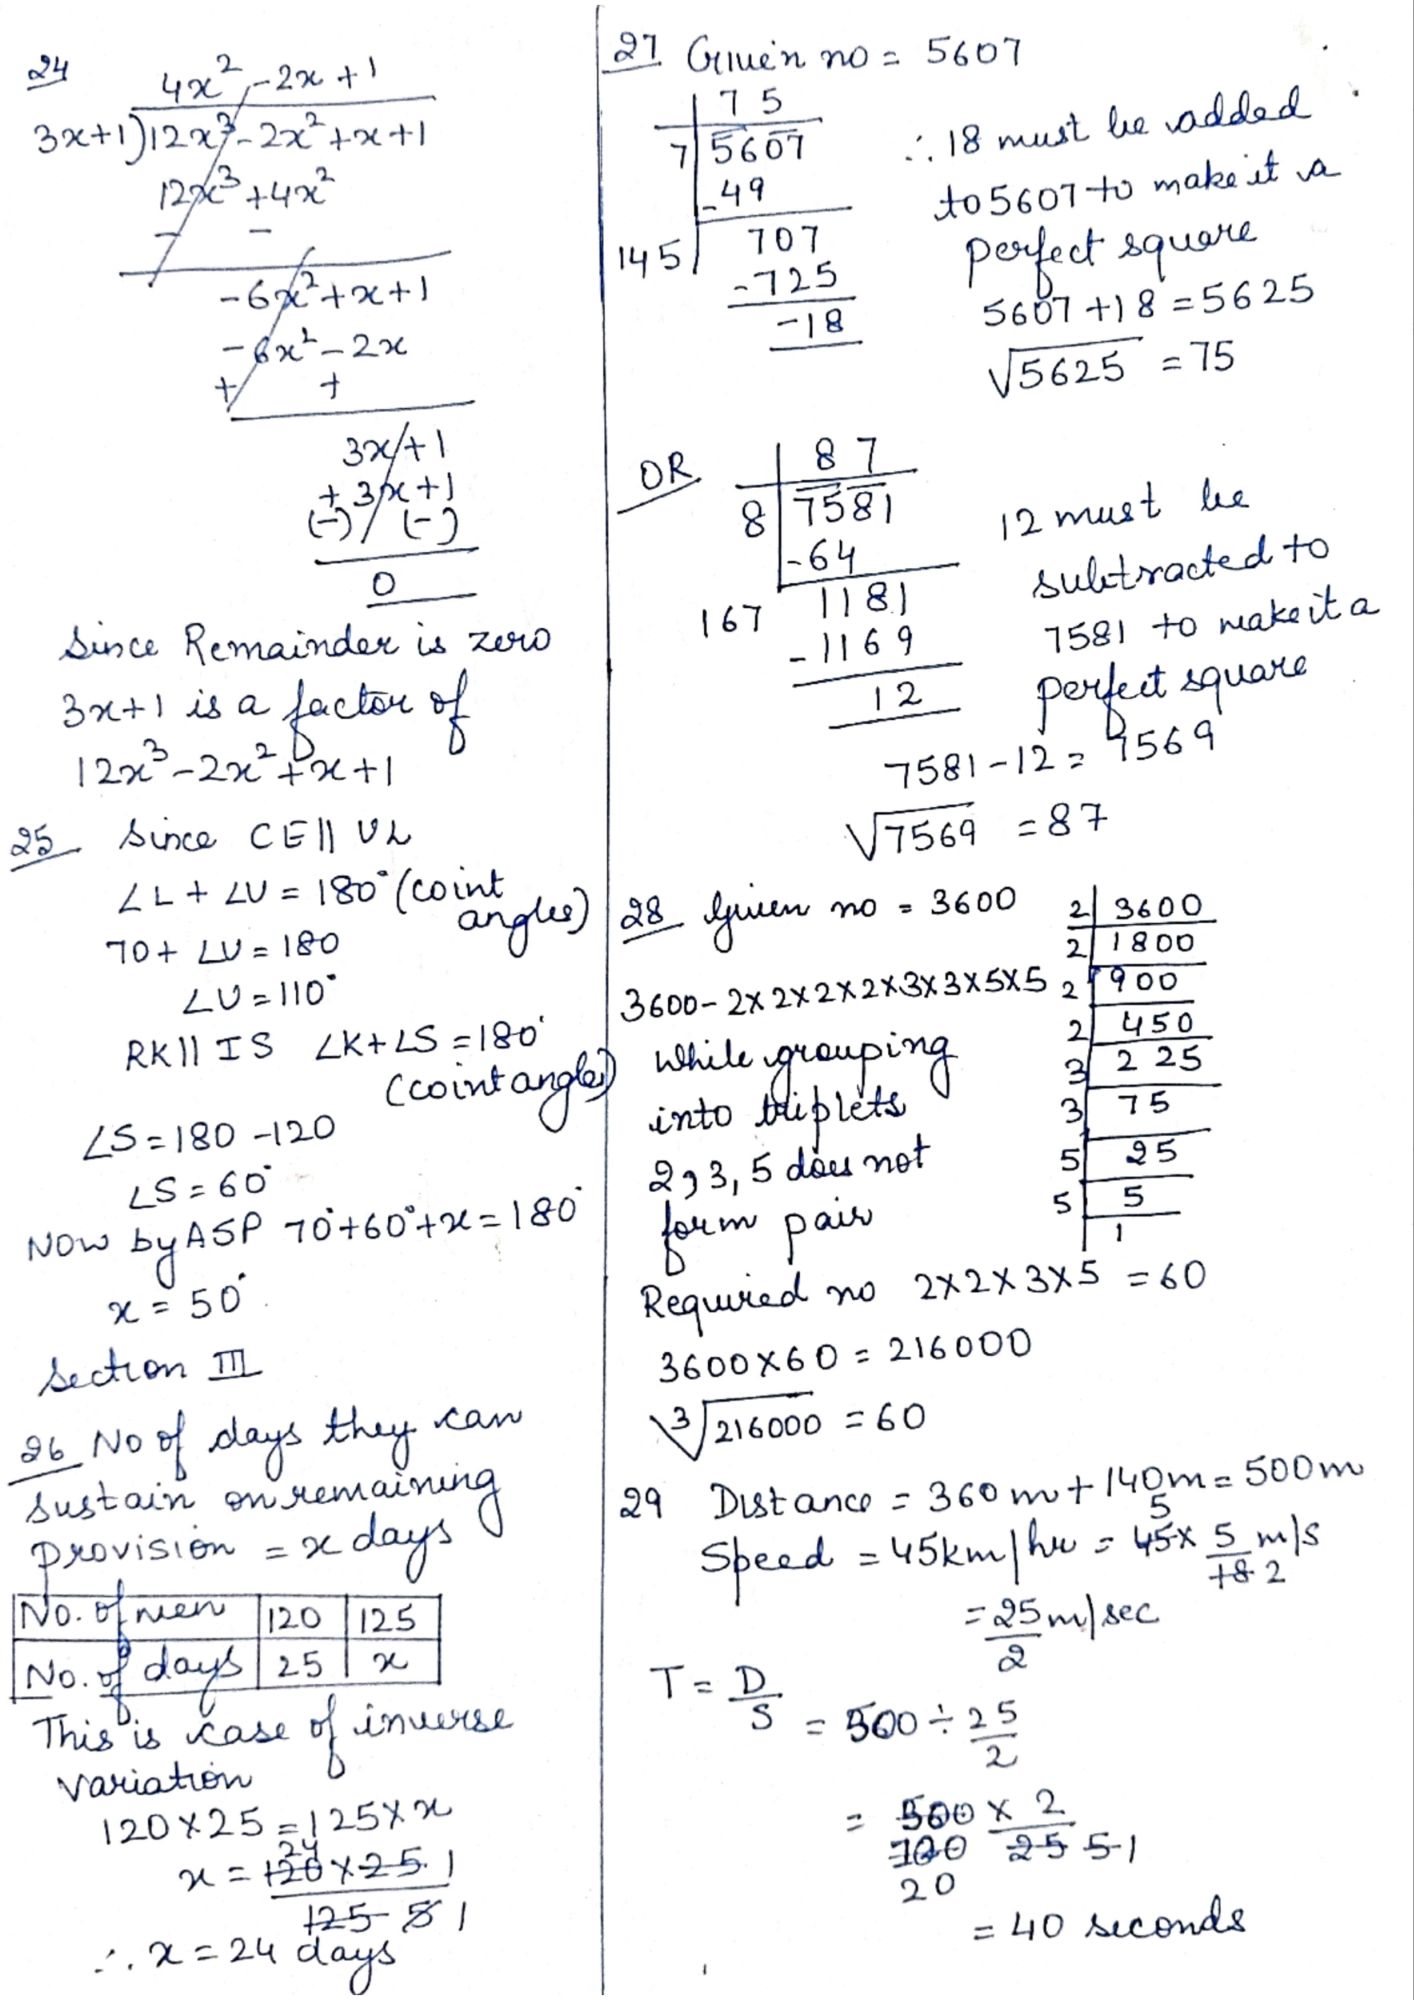 24
4x² - 2x + 1
3x+1)12x³ - 2x² + x + 1
12x³ + 4x²
- -
-6x² + x + 1
-6x² - 2x
+ +
3x + 1
+ 3x + 1
(-) (-)
0
Since Remainder is zero
3x+1 is a factor of
12x³ - 2x² + x + 1
25 Since CE || UL
∠L + ∠U = 180° (coint
angles)
70 + ∠U = 180
∠U = 110°
RK || IS ∠K + ∠S = 180°
(coint angles)
∠S = 180 - 120
∠S = 60°
Now by ASP 70° + 60° + x = 180°
x = 50°.
Section III
26 No of days they can
sustain on remaining
provision = x days
No. of men 120 125
No. of days 25 x
This is case of inverse
variation
120 × 25 = 125 × x
24
x = 120 × 25 1
125 5 1
∴ x = 24 days
27 Given no = 5607
7 5
7 5607
-49
145 707
-725
-18
∴ 18 must be added
to 5607 to make it a
perfect square
5607 + 18 = 5625
√5625 = 75
OR
8 7
8 7581
-64
167 1181
-1169
12
12 must be
subtracted to
7581 to make it a
perfect square
7581 - 12 = 7569
√7569 = 87
28 Given no = 3600
3600 - 2×2×2×2×3×3×5×5
While grouping
into triplets
2, 3, 5 does not
form pair
2 3600
2 1800
2 900
2 450
3 225
3 75
5 25
5 5
1
Required no 2×2×3×5 = 60
3600×60 = 216000
∛216000 = 60
29 Distance = 360 m + 140 m = 500 m
5
Speed = 45 km/hr = 45 × 5 m/s
18 2
= 25 m/sec
2
T = D
S
= 500 ÷ 25
2
= 500 × 2
100 25 5 1
20
= 40 seconds